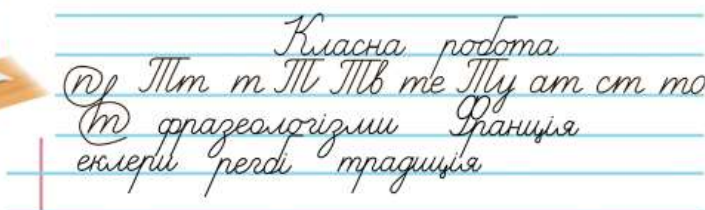 Класна робота
п Тт т Т Тв те Ту ат ст то
т фразеологізми Франція
еклери регбі традиція